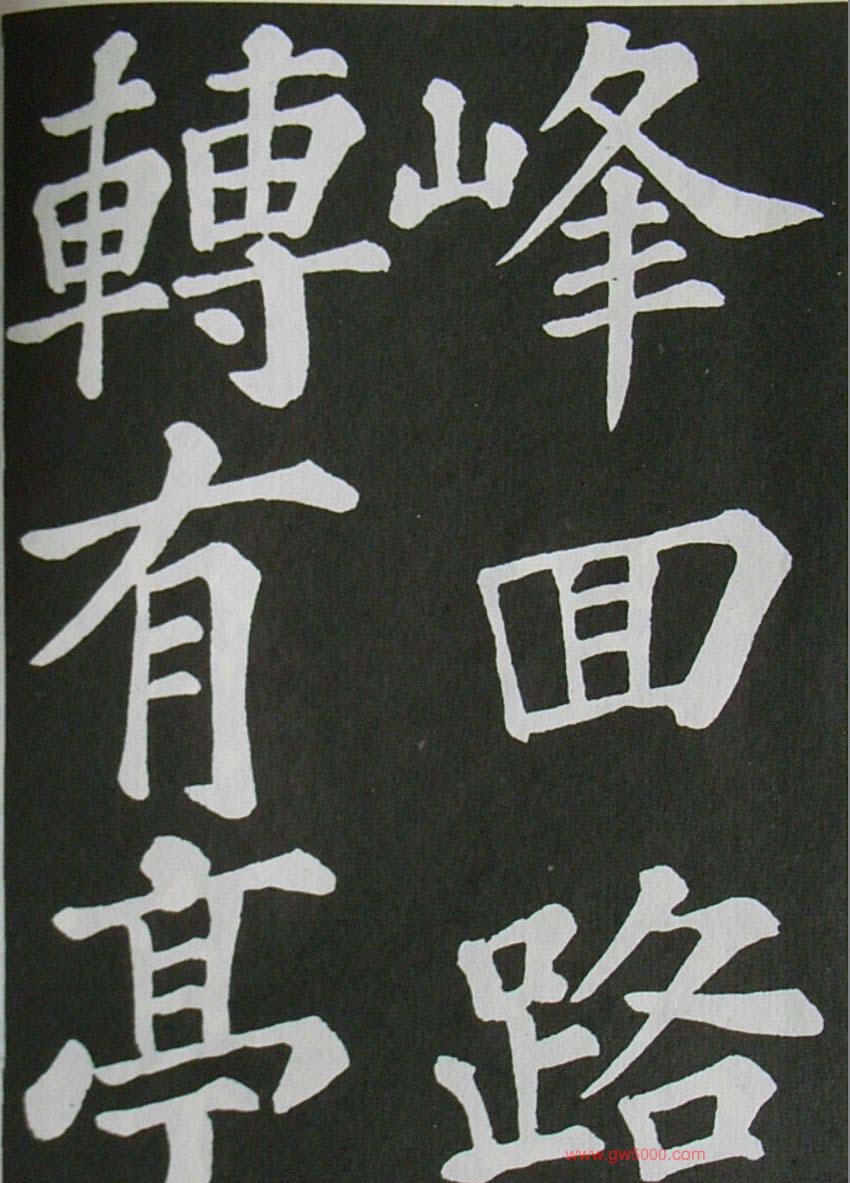 峰囬路
轉有亭
www.gw5000.com